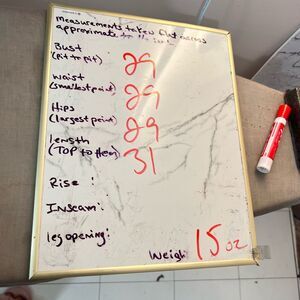 measurements taken flat across
approximate to 1/2 inch
Bust
(pit to pit) 29
waist
(smallest point) 29
Hips
(largest point) 29
length
(TOP to Hem) 31
Rise :
Inseam:
leg opening:
Weigh 15 oz